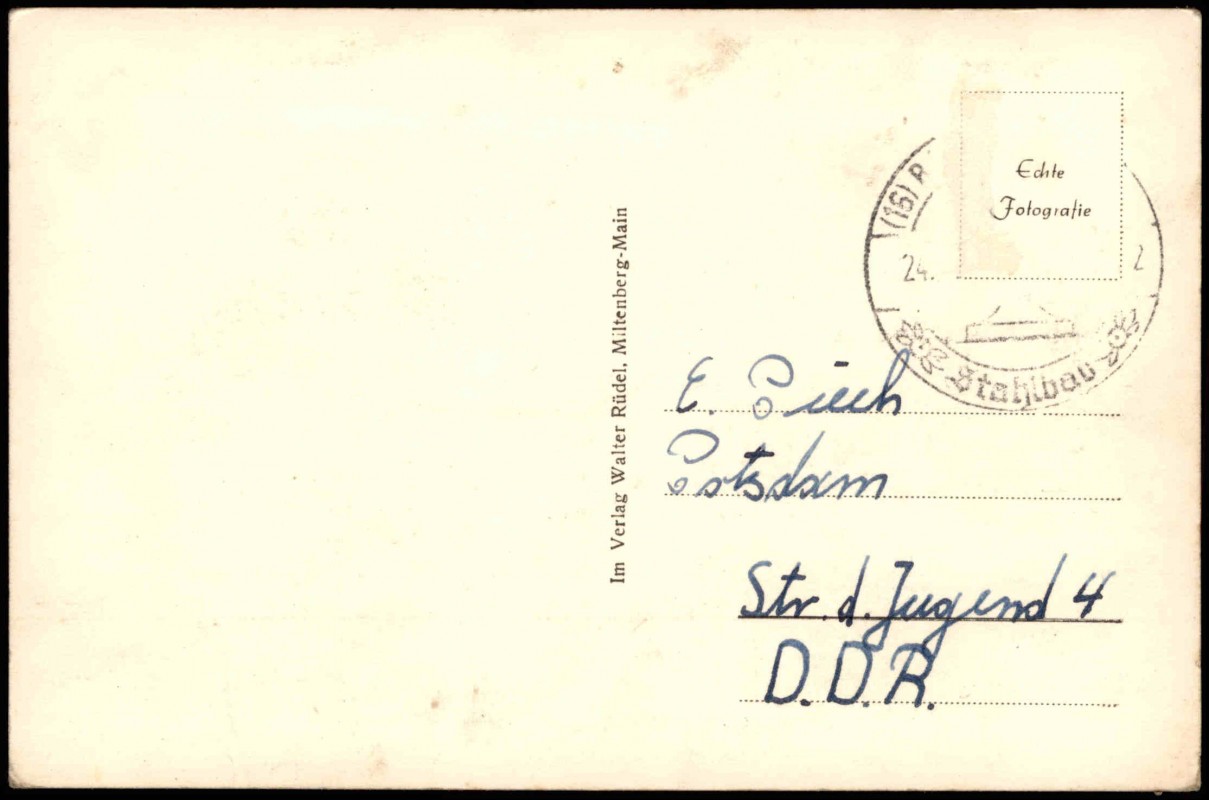 Echte
Fotografie
(16) R
24.
2
Stahlbau
Im Verlag Walter Rüdel, Miltenberg-Main
E. Piech
Potsdam
Str. d. Jugend 4
D.D.R.